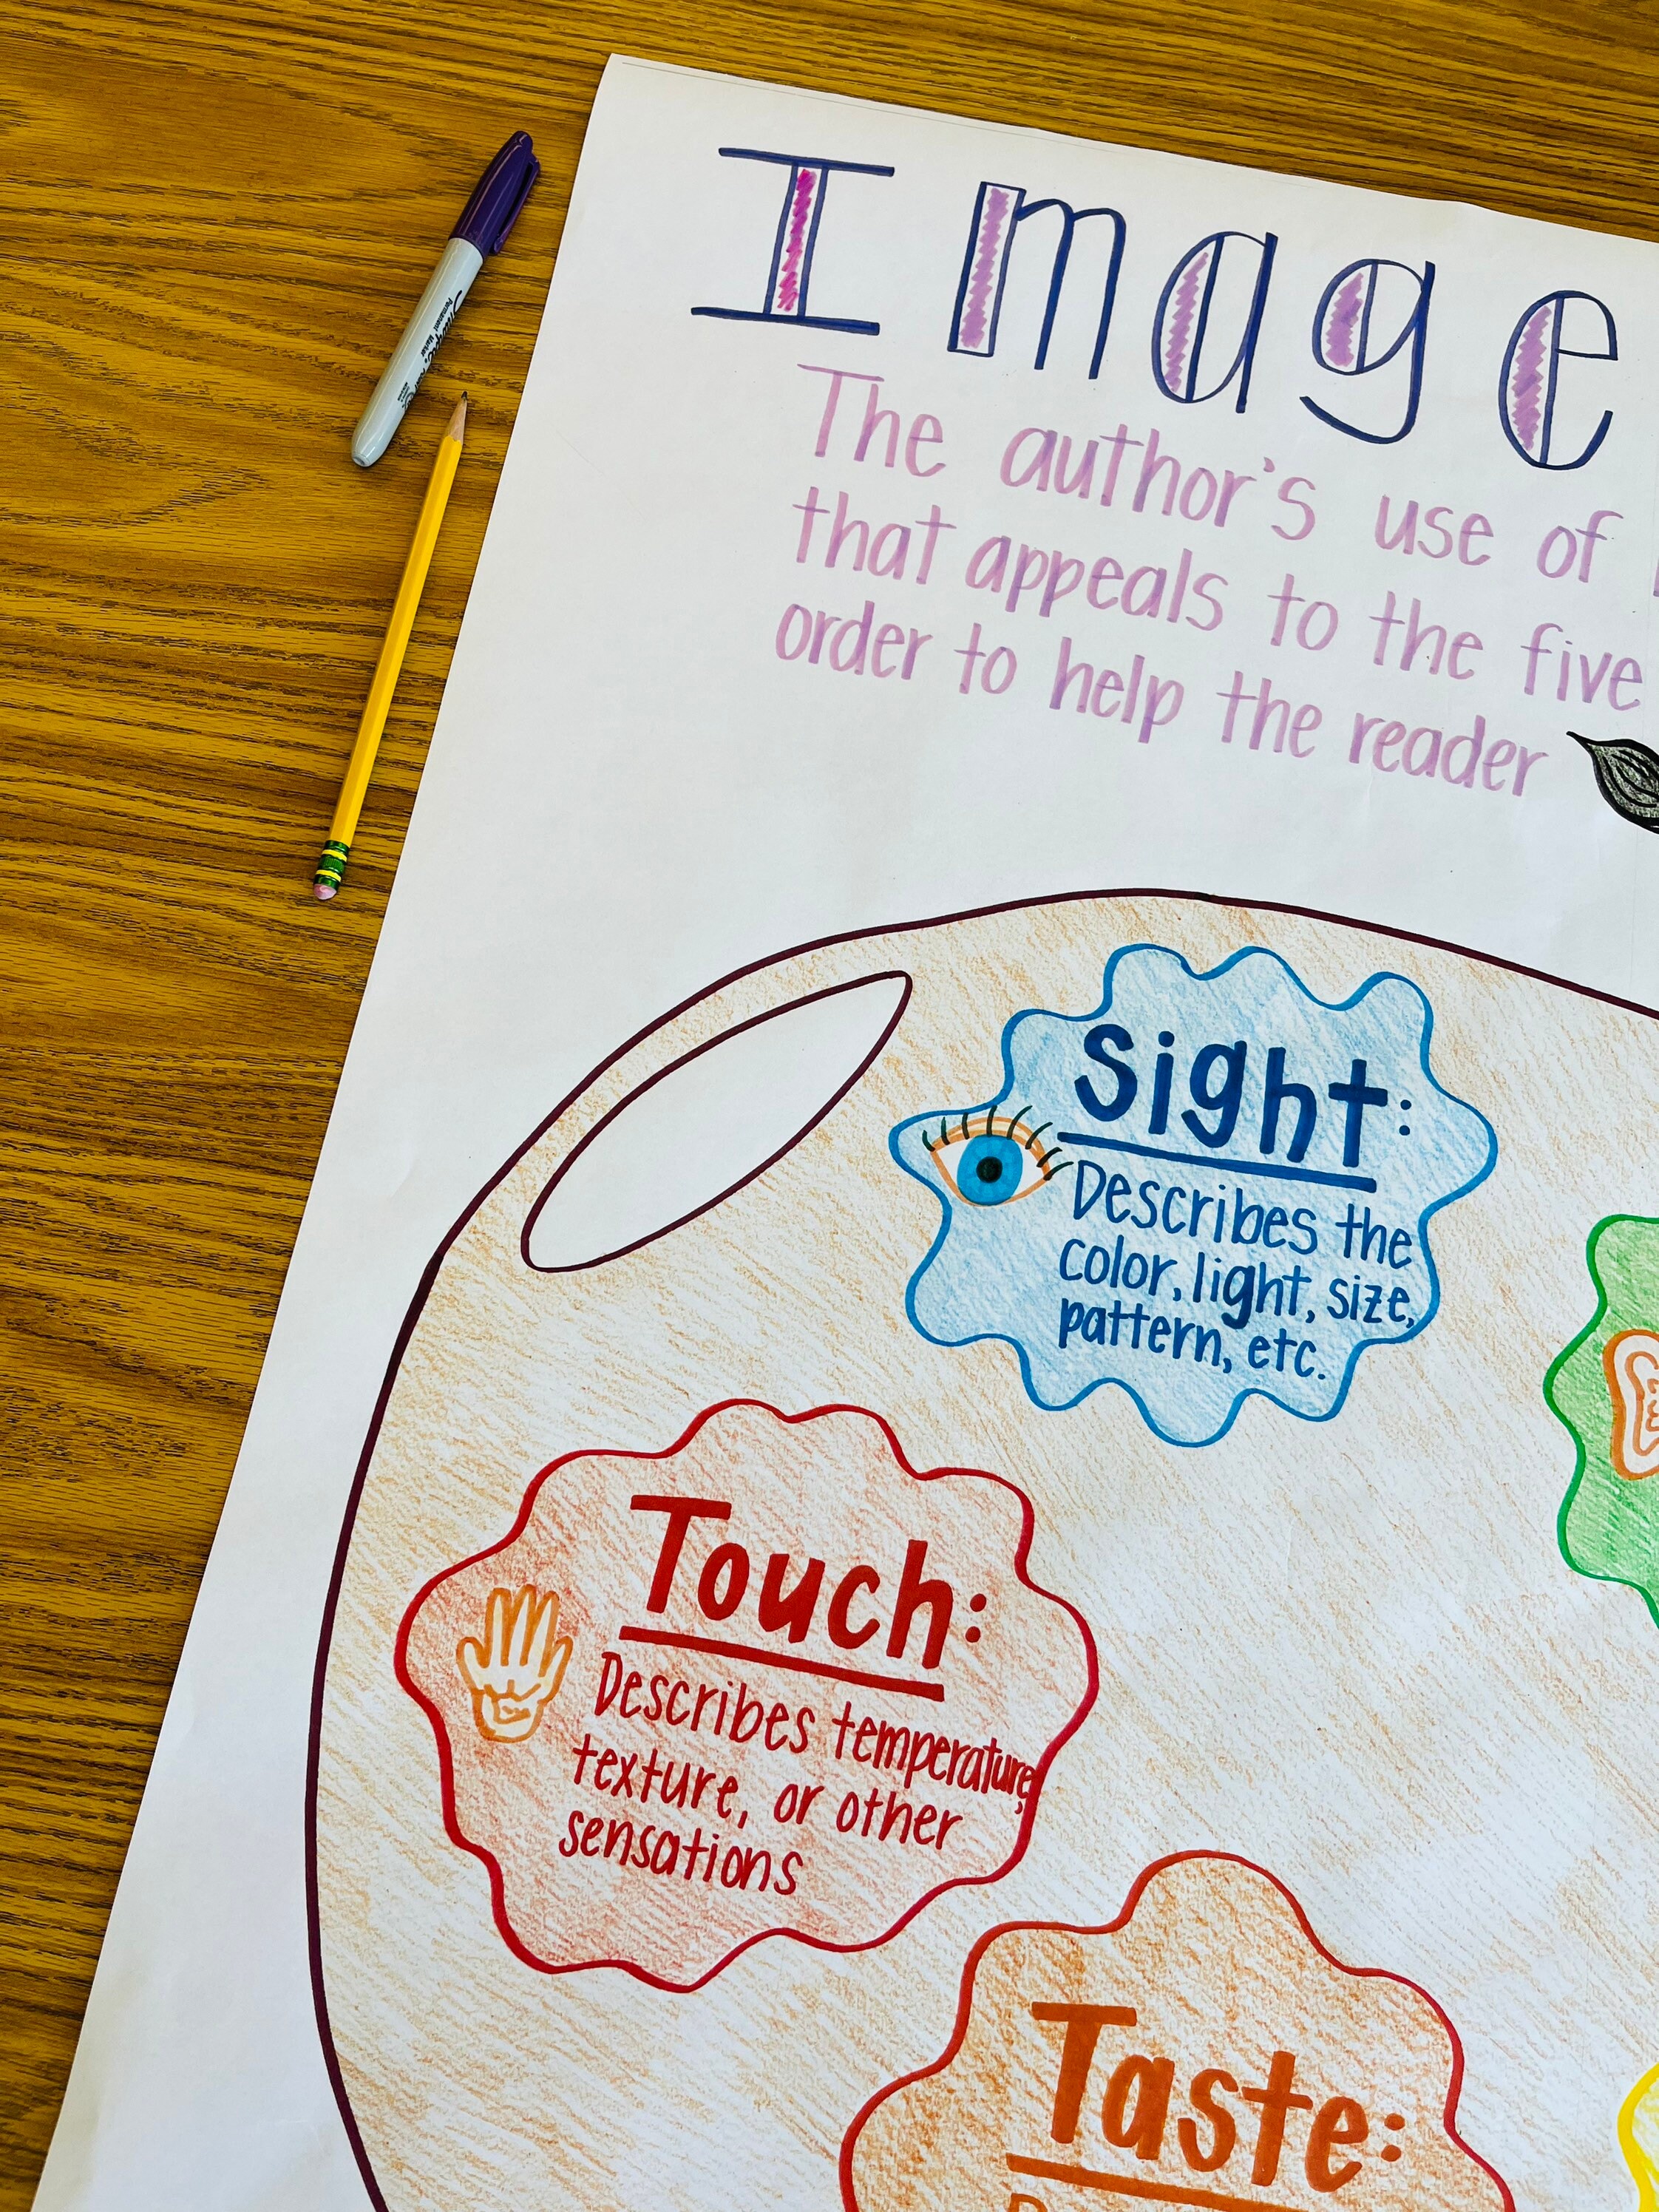 Image
The author's use of
that appeals to the five
order to help the reader
Sight:
Describes the
color, light, size,
pattern, etc.
Touch:
Describes temperature,
texture, or other
sensations
Taste:
Sharpie
Permanent Marker